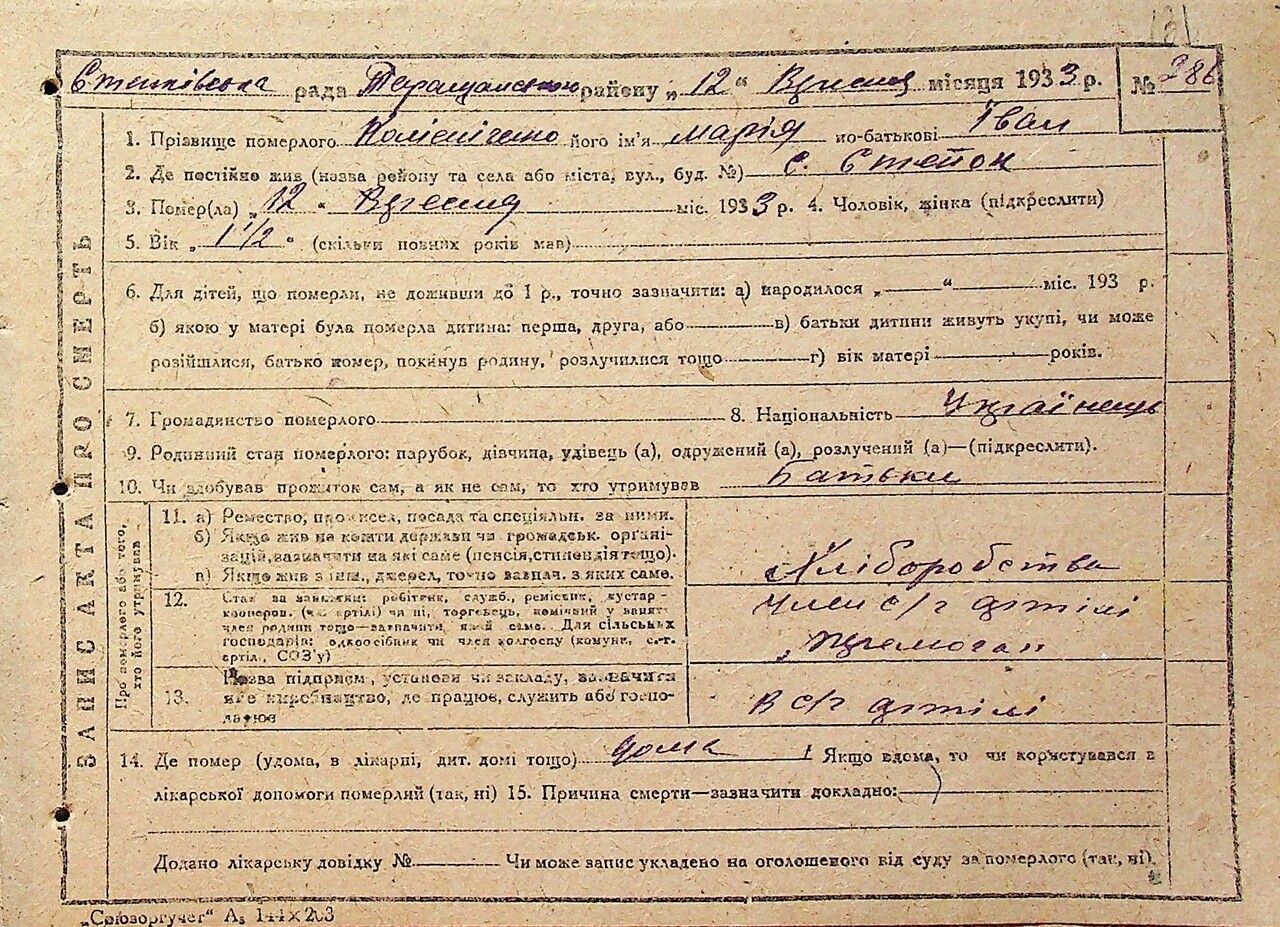 181
Степківська рада Таращанського району „12“ Вересня місяця 1933 р. № 286
ЗАПИС АКТА ПРО СМЕРТЬ
1. Прізвище померлого його ім'я Марія по-батькові Іван
2. Де постійно жив (назва району та села або міста, вул., буд. №) с. Степок
3. Помер(ла) „12“ Вересня міс. 1933 р. 4. Чоловік, жінка (підкреслити)
5. Вік „1 1/2“ (скільки повних років мав)
6. Для дітей, що померли, не доживши до 1 р., точно зазначити: а) народилося „ “ міс. 193 р.
б) якою у матері була померла дитина: перша, друга, або в) батьки дитини живуть укупі, чи може
розійшлися, батько помер, покинув родину, розлучилися тощо г) вік матері років.
7. Громадянство померлого 8. Національність Українець
9. Родинний стан померлого: парубок, дівчина, удівець (а), одружений (а), розлучений (а)—(підкреслити).
10. Чи здобував прожиток сам, а як не сам, то хто утримував Батьки
Про померлого або того,
хто його утримував
11. а) Ремество, промисел, посада та спеціяльн. за ними.
б) Якщо жив на кошти держави чи громадськ. організацій, зазначити на які саме (пенсія, стипендія тощо).
в) Якщо жив з інш. джерел, точно зазнач. з яких саме.
Хліборобства
12. Стан за занятям: робітник, служб., ремісник, кустар -
кооперов. (чл. артілі) чи ні, торговець, помічний у занят.
член родини тощо—зазначити, який саме. Для сільських
господарів: одноосібник чи член колгоспу (комуни, с.-г.
артіл., СОЗ'у)
Член с/г артілі
13. Назва підприєм, установи чи закладу, зазначити
яке виробництво, де працює, служить або господарює
В с/г артілі
14. Де помер (удома, в лікарні, дит. домі тощо) дома Якщо вдома, то чи користувався з
лікарської допомоги померлий (так, ні) 15. Причина смерти—зазначити докладно:
Додано лікарську довідку № Чи може запис укладено на оголошеного від суду за померлого (так, ні).
„Союзоргучет“ А₅ 144×203